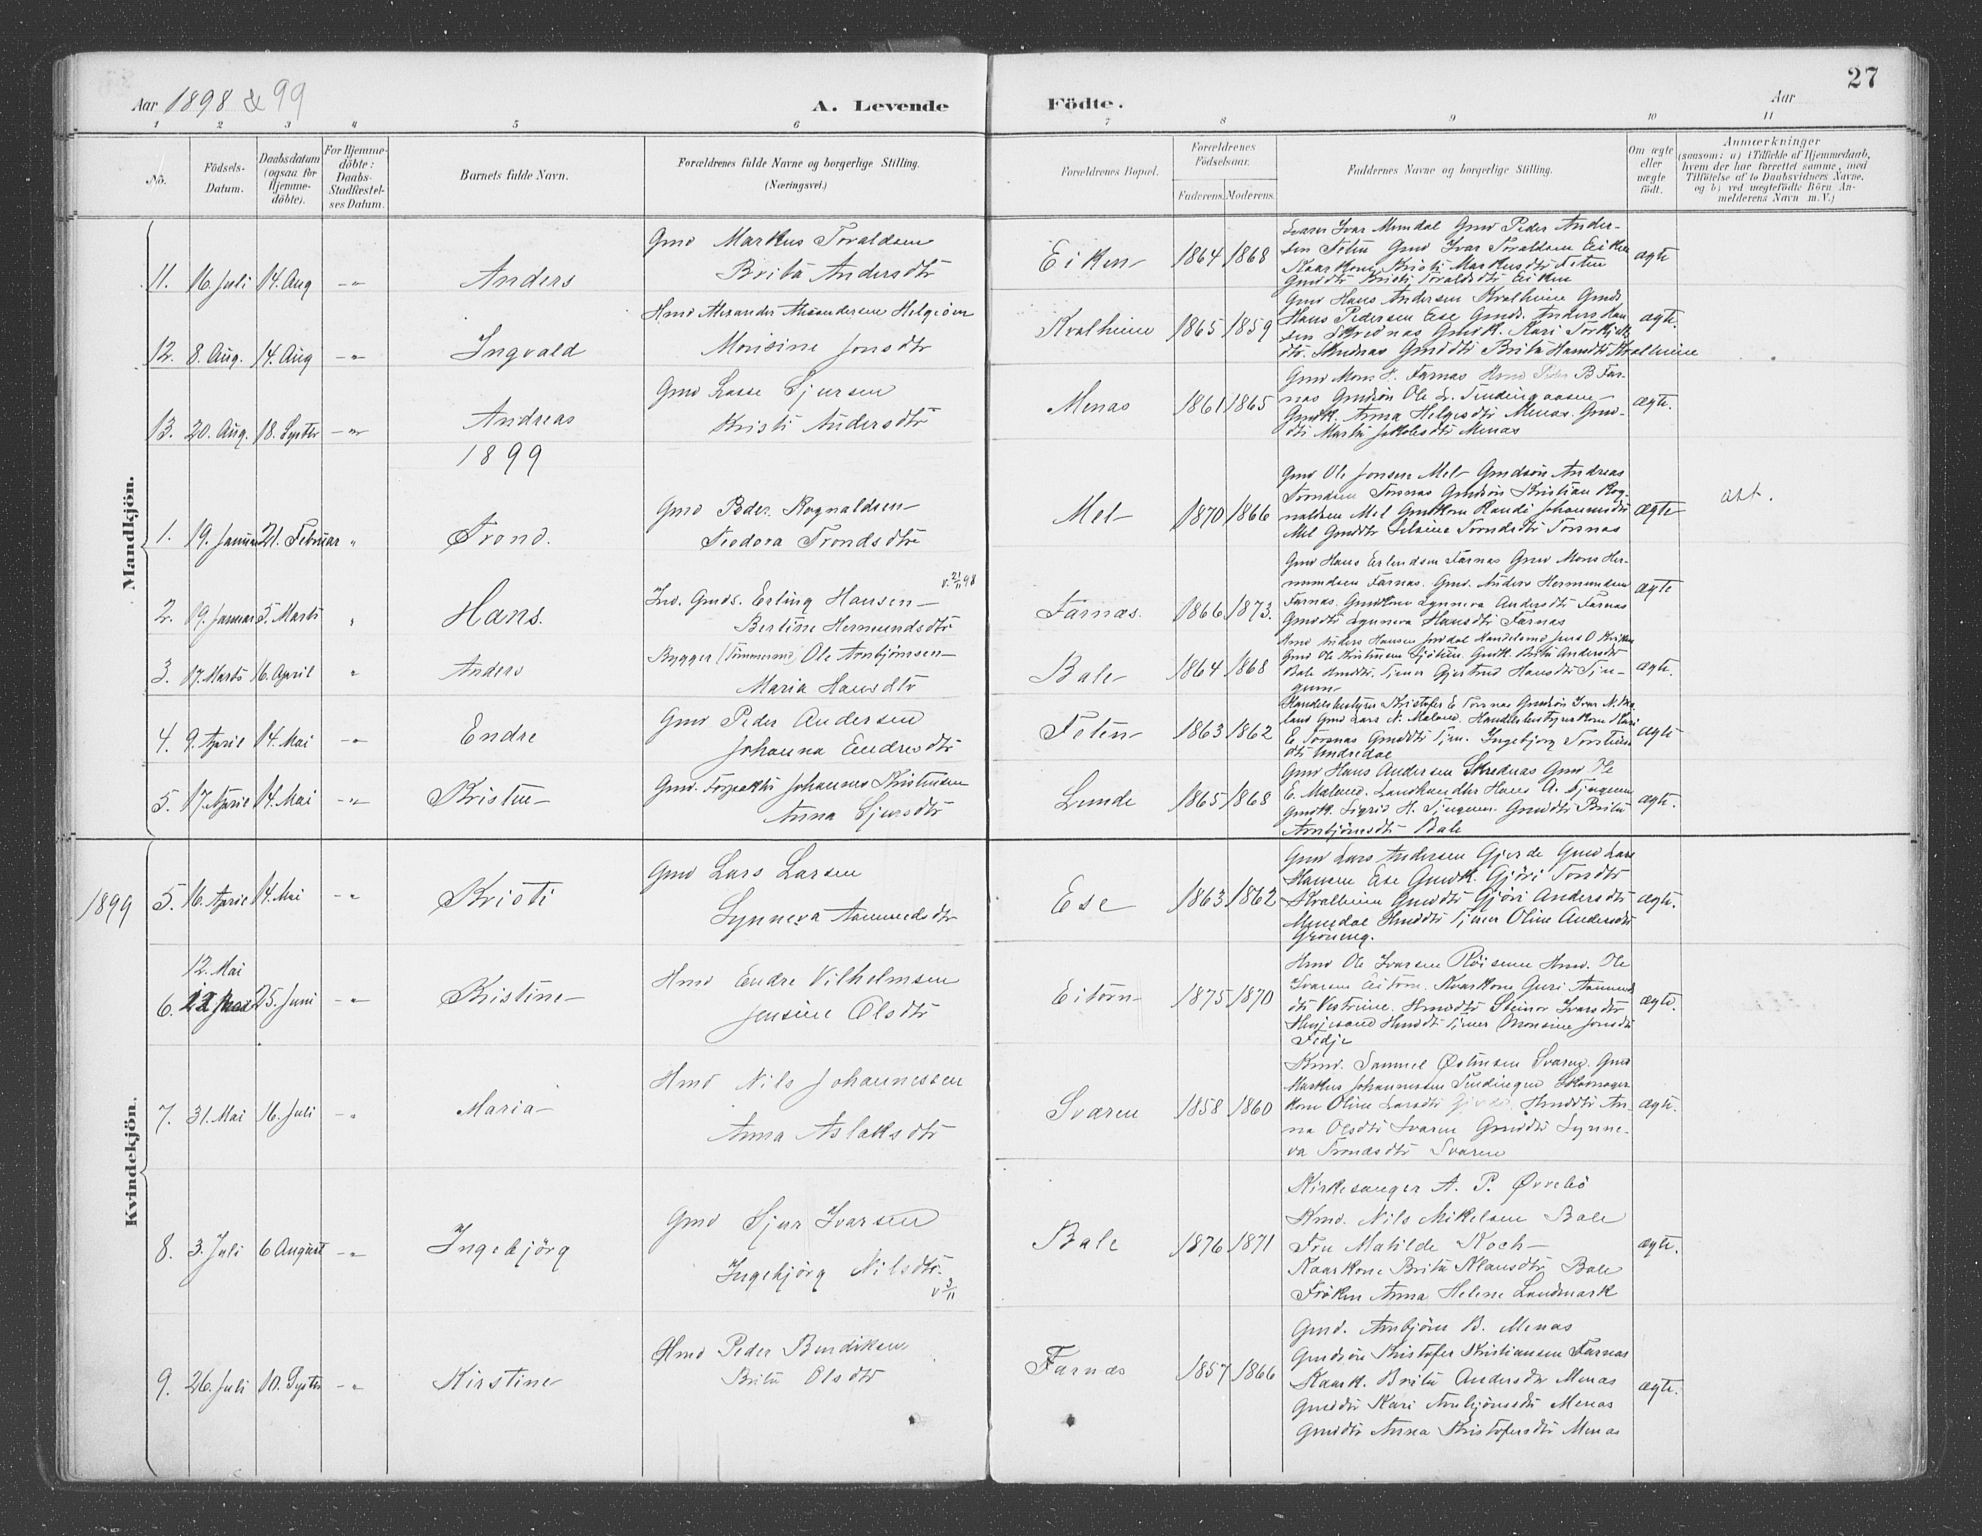 27
Aar 1898 & 99
A. Levende
Födte.
Aar
1 2 3 4 5 6 7 8 9 10 11
No.
Födsels-Datum.
Daabsdatum (ogsaa for Hjemmedöbte).
For Hjemmedöbte: Daabs-Stadfæstelses Datum.
Barnets fulde Navn.
Forældrenes fulde Navne og borgerlige Stilling.
(Næringsvei.)
Forældrenes Bopæl.
Forældrenes Födselsaar.
Faderens. Moderens.
Faddernes Navne og borgerlige Stilling.
Om ægte eller uægte födt.
Anmærkninger
(saasom: a) i Tilfælde af Hjemmedaab, hvem der har forrettet samme, med Tilföielse af to Daabsvidners Navne, og b) ved uægtefödte Börn Anmelderens Navn m. V.)
Mandkjön.
11. 16. Juli 14. Aug -"- Anders
Gmd Markus Toraldsen
Brita Andersdtr
Eiken 1864 1868
Ivar Mundal Gmd Peder Andersen Feten Gmd Ivar Toraldsen Eiken
Kaarkone Kristi Markusdtr Feten
Gmddtr Kristi Toraldsdtr Eiken
ægte
12. 8. Aug. 14. Aug -"- Ingvald
Hmd Alexander Alexandersen
Monsine Jonsdtr
Kvalheim 1865 1859
Gmd Hans Andersen Kvalheim Gmds.
Hans Pedersen Ese Gmds. Anders Hansen Skrednas Gmdk. Kari
dtr. Skrednas Gmddtr Brita Hansdtr Kvalheim
ægte.
13. 20. Aug. 18. Septbr -"- Andreas
Gmd Lasse Sjursen
Kristi Andersdtr
Menas 1861 1865
Gmd Mons H. Farnas Hmd Peder B Farnas Gmdsön Ole L.
Gmdk. Anna Helgesdtr Menas. Gmddtr Marta Jakobsdtr Menas
ægte.
1899
1. 19. Januar 21. Februar " Trond.
Gmd Peder Rognaldsen
Teodora Trondsdtr
Mel 1870 1866
Gmd Ole Jonsen Mel Gmdsön Andreas
Trondsen Tornas Gmdsön Kristian Rognaldsen Mel Gmdkone Randi Johannesdtr
Mel Gmddtr Trondsdtr Tornas
ægte
att.
2. 19. Januar 5. Marts " Hans.
Ind. Gmds. Erling Hansen
v. 21/11 98
Bertine Hermundsdtr
Farnæs. 1866 1873.
Gmd Hans Erlendsen Farnas Gmd Mons Hermundsen Farnas. Gmd. Anders Hermundsen
Farnas. Gmdkone Synneva Andersdtr Farnas
Gmddtr Synneva Hansdtr Farnas
ægte
3. 17. Marts 16. April " Anders
Bygger (Tömmermd) Ole Arnbjörnsen
Maria Hansdtr
Bale 1864 1868
Gmd Ole Kristensen Gmdk. Brita Andersdtr
Bale Tjener Gjertrud Hansdtr
ægte.
4. 9. April 14. Mai -"- Endre
Gmd Peder Andersen
Johanna Endresdtr
Feten 1863 1862
Kristofer E Tornas Gmdsön Ivar N.
Gmd Lars N. Maland. Kari
E. Tornas Gmddtr Tjen. Ingebjorg
dtr Andredal
ægte
5. 17. April 14. Mai -"- Kristen
Gmd. Forpakter Johannes Kristensen
Anna Sjursdtr
Lunde 1865 1868
Gmd Hans Andersen Skrednas Gmd Ole
E. Maland. Landhandler Hans A. Tjugum
Gmdk. Sigrid H. Tjugum. Gmddtr Brita
Arnbjörnsdtr Bale
ægte.
Kvindekjön.
1899
5. 16. April 14. Mai -"- Kristi
Gmd Lars Larsen
Synneva Aamundsdtr
Ese 1863 1862
Gmd Lars Andersen Gjerde Gmd Lars
Hansen Ese Gmdk. Gjöri
Kvalheim Gmddtr Gjöri Andersdtr
Mundal Hmddtr Tjener Oline Andersdtr
Gröneng.
ægte.
6. 12. Mai 25. Juni -"- Kristine
Hmd Endre Vilhelmsen
Jensine Olsdtr
Eitorn 1875 1870
Hmd Ole Ivarsen Röisum Hmd. Ole
Ivarsen Eitorn. Kaarkone Guri Aamundsdtr Vestreim. Hmddtr Steinor Ivarsdtr
Hmddtr Tjener Monsine Jonsdtr
Fedje
ægte.
7. 31. Mai 16. Juli -"- Maria
Hmd Nils Johannessen
Anna Aslaksdtr
Svaren 1858 1860
Hmd. Samuel Østensen Svaren. Gmd
Markus Johannessen Tendingen Skomagerkone Oline Larsdtr Gjerde. Hmddtr Anna Olsdtr Svaren Gmddtr Synneva Trondsdtr Svaren
ægte.
8. 3. Juli 6 August -"- Ingebjörg
Gmd Sjur Ivarsen
Ingebjörg Nilsdtr.
v 3/11
Bale 1876 1871
Kirkesanger A. P. Øvrebö
Kmd. Nils Mikelsen Bale
Fru Matilde Koch
Kaarkone Brita Klausdtr Bale
Fröken Anna Helene Landmark
ægte.
9. 26. Juli 10. Septbr -"- Kirstine
Hmd Peder Bendiksen
Brita Olsdtr
Farnæs 1857 1866
Gmd. Arnbjörn B. Menas
Gmdsön Kristofer Kristiansen Farnas
Kaark. Brita Andersdtr Menas
Gmddtr Kari Arnbjönsdtr Menas
Gmddtr Anna Kristofersdtr Menas
ægte.